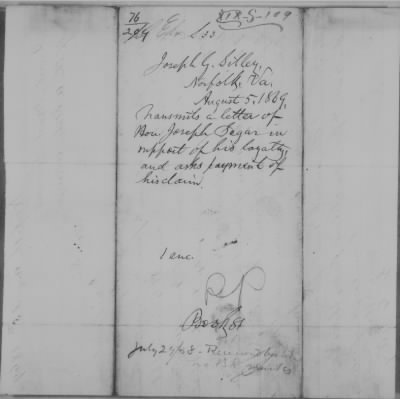 76
XIX-S-109
Joseph G. Silley,
Norfolk, Va.
August 5, 1869.
Transmits a letter of
Hon. Joseph Segar in
support of his loyalty,
and asks payment of
his claim.
1 enc.
July